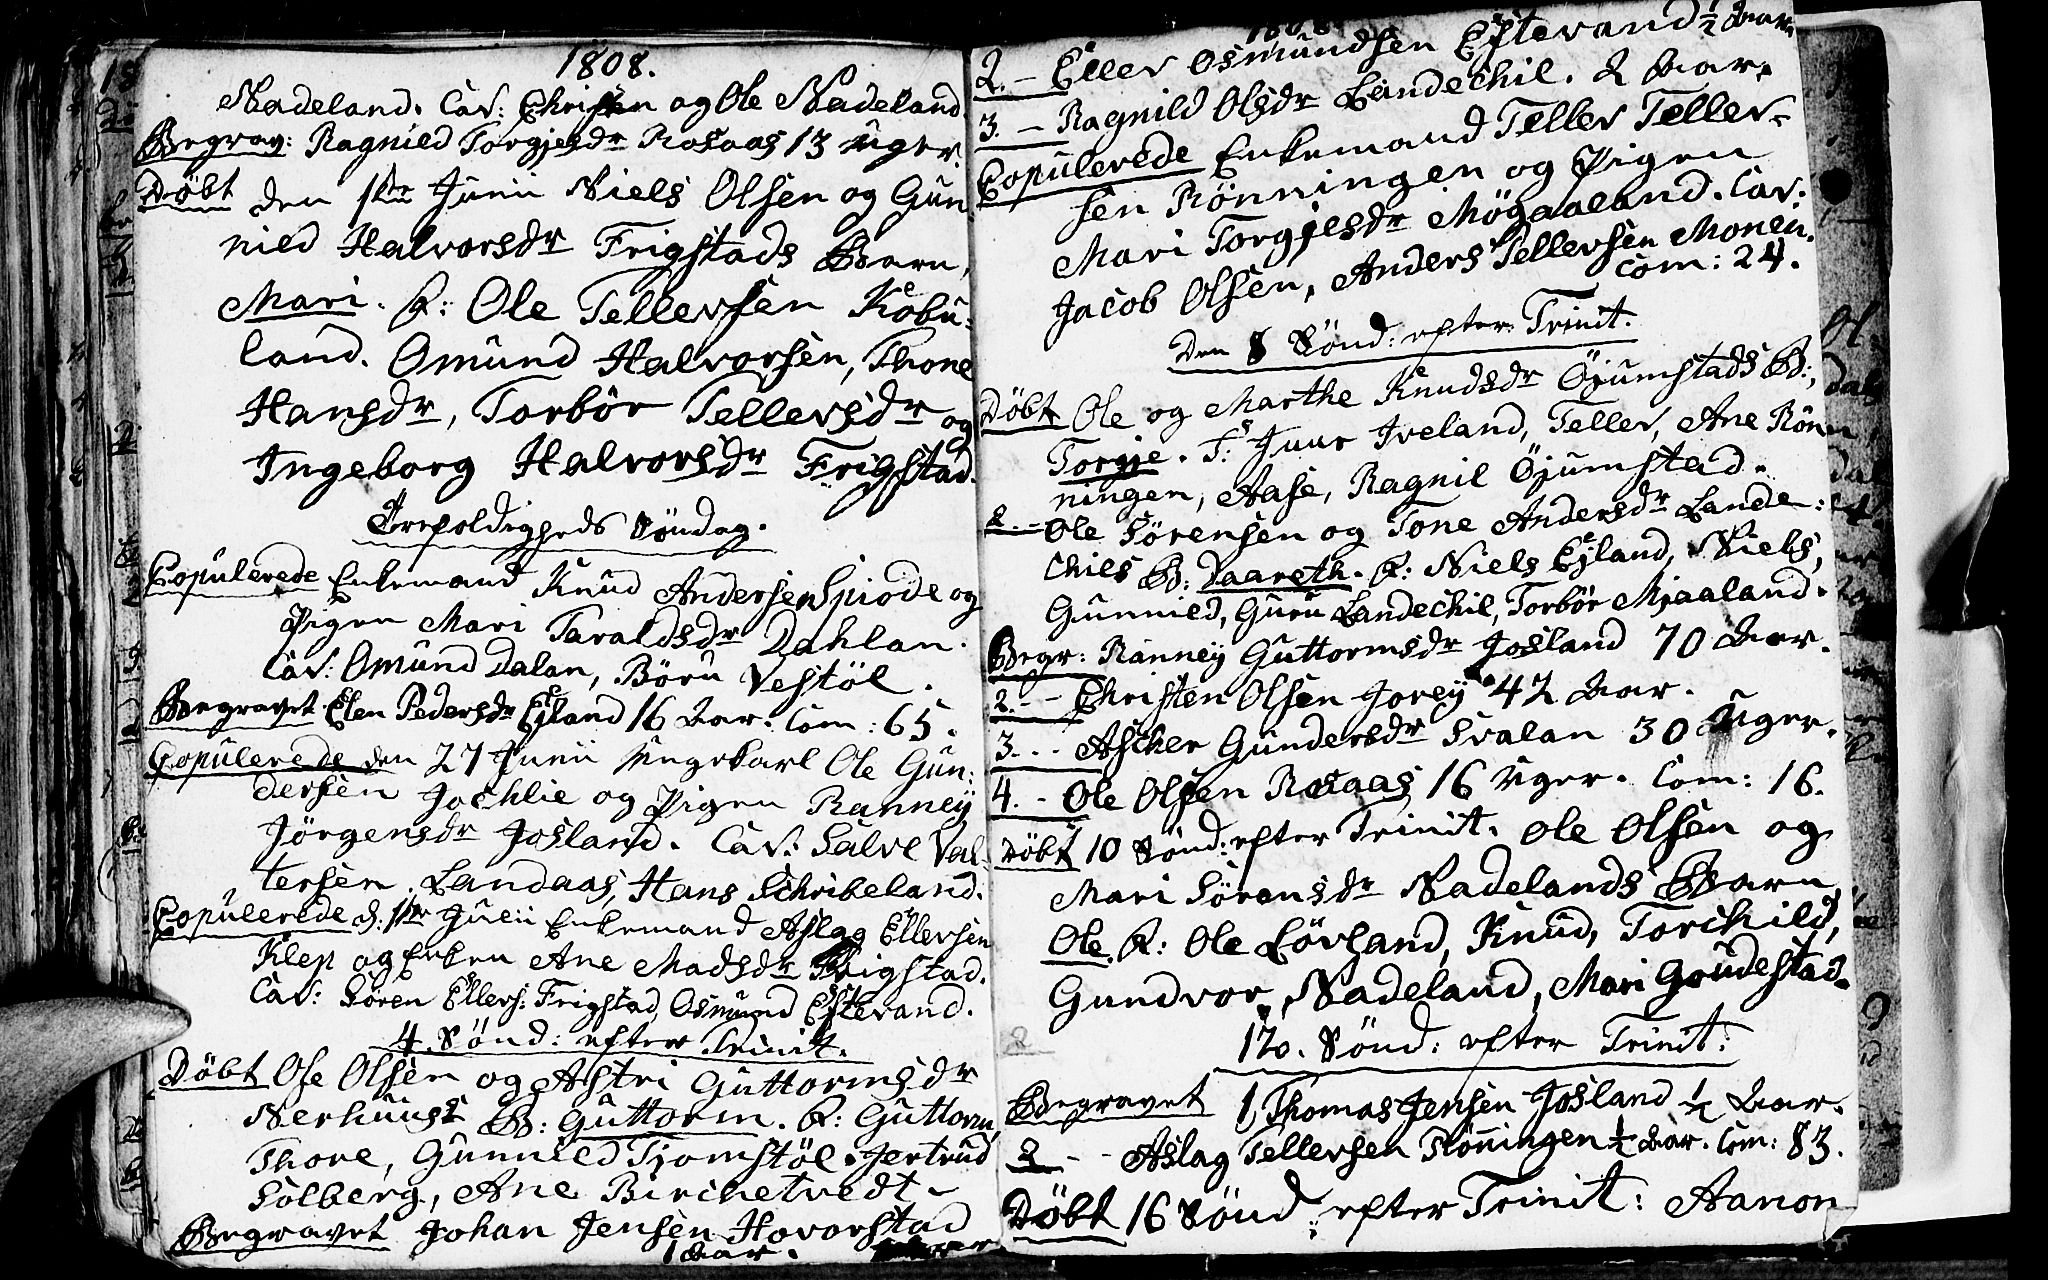 1808.
Nadeland. Cav: Christen og Ole Nadeland
Begrav: Ragnild Torgjesdr Rosaas 13 Uger.
Döbt den 1ste Junii Niels Olsen og Gun-
nild Halvorsdr Frigstads Barn,
Mari. F: Ole Tellefsen Röbu-
land. Omund Halvorsen, Thone
Hansdr, Torbör Tellefsdr og
Ingeborg Halvorsdr Frigstad.
Trefoldigheds Söndag.
Copulerede Enkemand Knud Andersen Spiode og
Pigen Mari Taraldsdr Dahlan.
Cav: Omund Dalan, Böru Vestöl.
Begravet Elen Pedersdr Ejland 16 Aar. Com: 65.
Copulerede den 27 Junii Ungekarl Ole Gun-
dersen Jochlie og Pigen Ranney
Jörgensdr Josland. Cav: Salve Val-
tersen Landaas, Hans Schribeland.
Copulerede d. 1ste Julii Enkemand Aslag Ellefsen
Klep og Enken Ane Madsdr Frigstad.
Cav: Sören Ellefs: Frigstad, Osmund Eftevand.
4. Sönd: efter Trinit.
Döbt Ole Olsen og Astri Guttormsdr
Nerhuus B: Guttorm. F: Guttorm,
Thore, Gunnild Tjomstöl, Jertrud
Solberg, Ane Birchetvedt.
Begravet Johan Jensen Hovorstad
1 Aar.
1808
2. - Ellef Osmundsen Eftevand 1/2 Aar.
3. - Ragnild Olsdr Landechil. 2 Aar.
Copulerede Enkemand Tellef Tellef-
sen Rönningen og Pigen
Mari Torgjesdr Mögaaland. Cav:
Jacob Olsen, Anders Tellefsen Monen.
Com: 24.
Den 8 Sönd: efter Trinit.
Döbt Ole og Marthe Knudsdr Öjumstads B:,
Torgje. F: Juur Iveland, Tellef, Ane Rön-
ningen, Aase, Ragnil Öjumstad.
2. - Ole Sörensen og Tone Andersdr Lande-
chils B: Daareth. F: Niels Ejland, Niels,
Gunnild, Guru Landechil, Torbör Mjaaland.
Begr: Ranney Guttormsdr Josland 70 Aar.
2. - Christen Olsen Jorey 42 Aar.
3. - Ascher Gundersdr Svalan 30 Uger.
4. - Ole Olsen Rosaas 16 Uger. Com: 16.
Döbt 10 Sönd: efter Trinit. Ole Olsen og
Mari Sörensdr Nadelands Barn,
Ole. F: Ole Lövland, Knud, Torchild,
Gundvor Nadeland, Mari Grudestad.
12. Sönd: efter Trinit:
Begravet 1, Thomas Jensen Josland 1/2 Aar.
2 - - Aslag Tellefsen Rönningen 1/2 Aar. Com: 83.
Döbt 16 Sönd: efter Trinit: Aanon